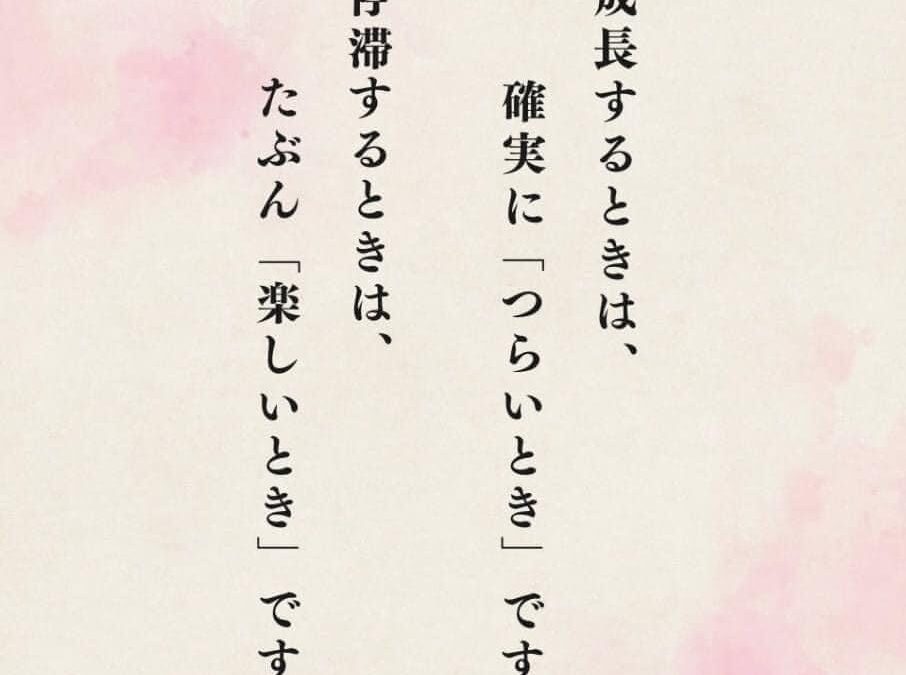 成長するときは、
確実に「つらいとき」です
停滞するときは、
たぶん「楽しいとき」です